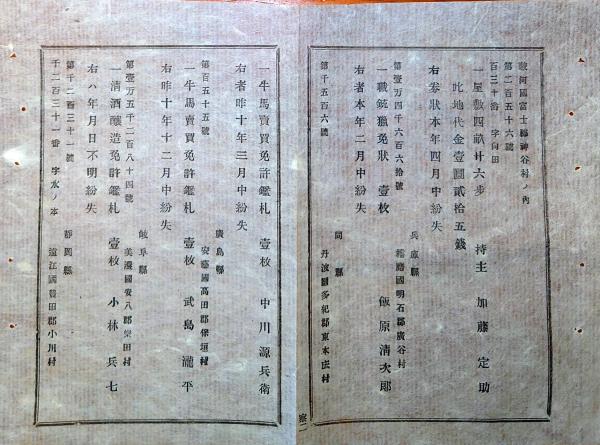 駿河國富士縣神谷村ノ內
第二百五十六號
百三十沿 字向田
一屋敷四畝廿六步 持主 加藤定助
此地代金壹圓貳拾五錢
右券狀本年四月中紛失
兵庫縣
播磨國明石郡廣谷村
第壹万四千六百六拾號
一職銃獵免狀 壹枚 飯原淸次郎
右者本年二月中紛失
同縣
丹波國多紀郡東木庄村
第千五百六號
一牛馬賣買免許鑑札 壹枚 中川源兵衛
右者昨十年三月中紛失
廣島縣
安藝國高田郡保垣村
第百五十五號
一牛馬賣買免許鑑札 壹枚 武島瀧平
右昨十年十二月中紛失
岐阜縣
美濃國安八郡柴田村
第壹万五千二百八十四號
一淸酒釀造免許鑑札 壹枚 小林兵七
右ハ年月日不明紛失
靜岡縣
遠江國豐田郡小川村
第千二百三十一號
千二百三十一番 字水ノ本
察二